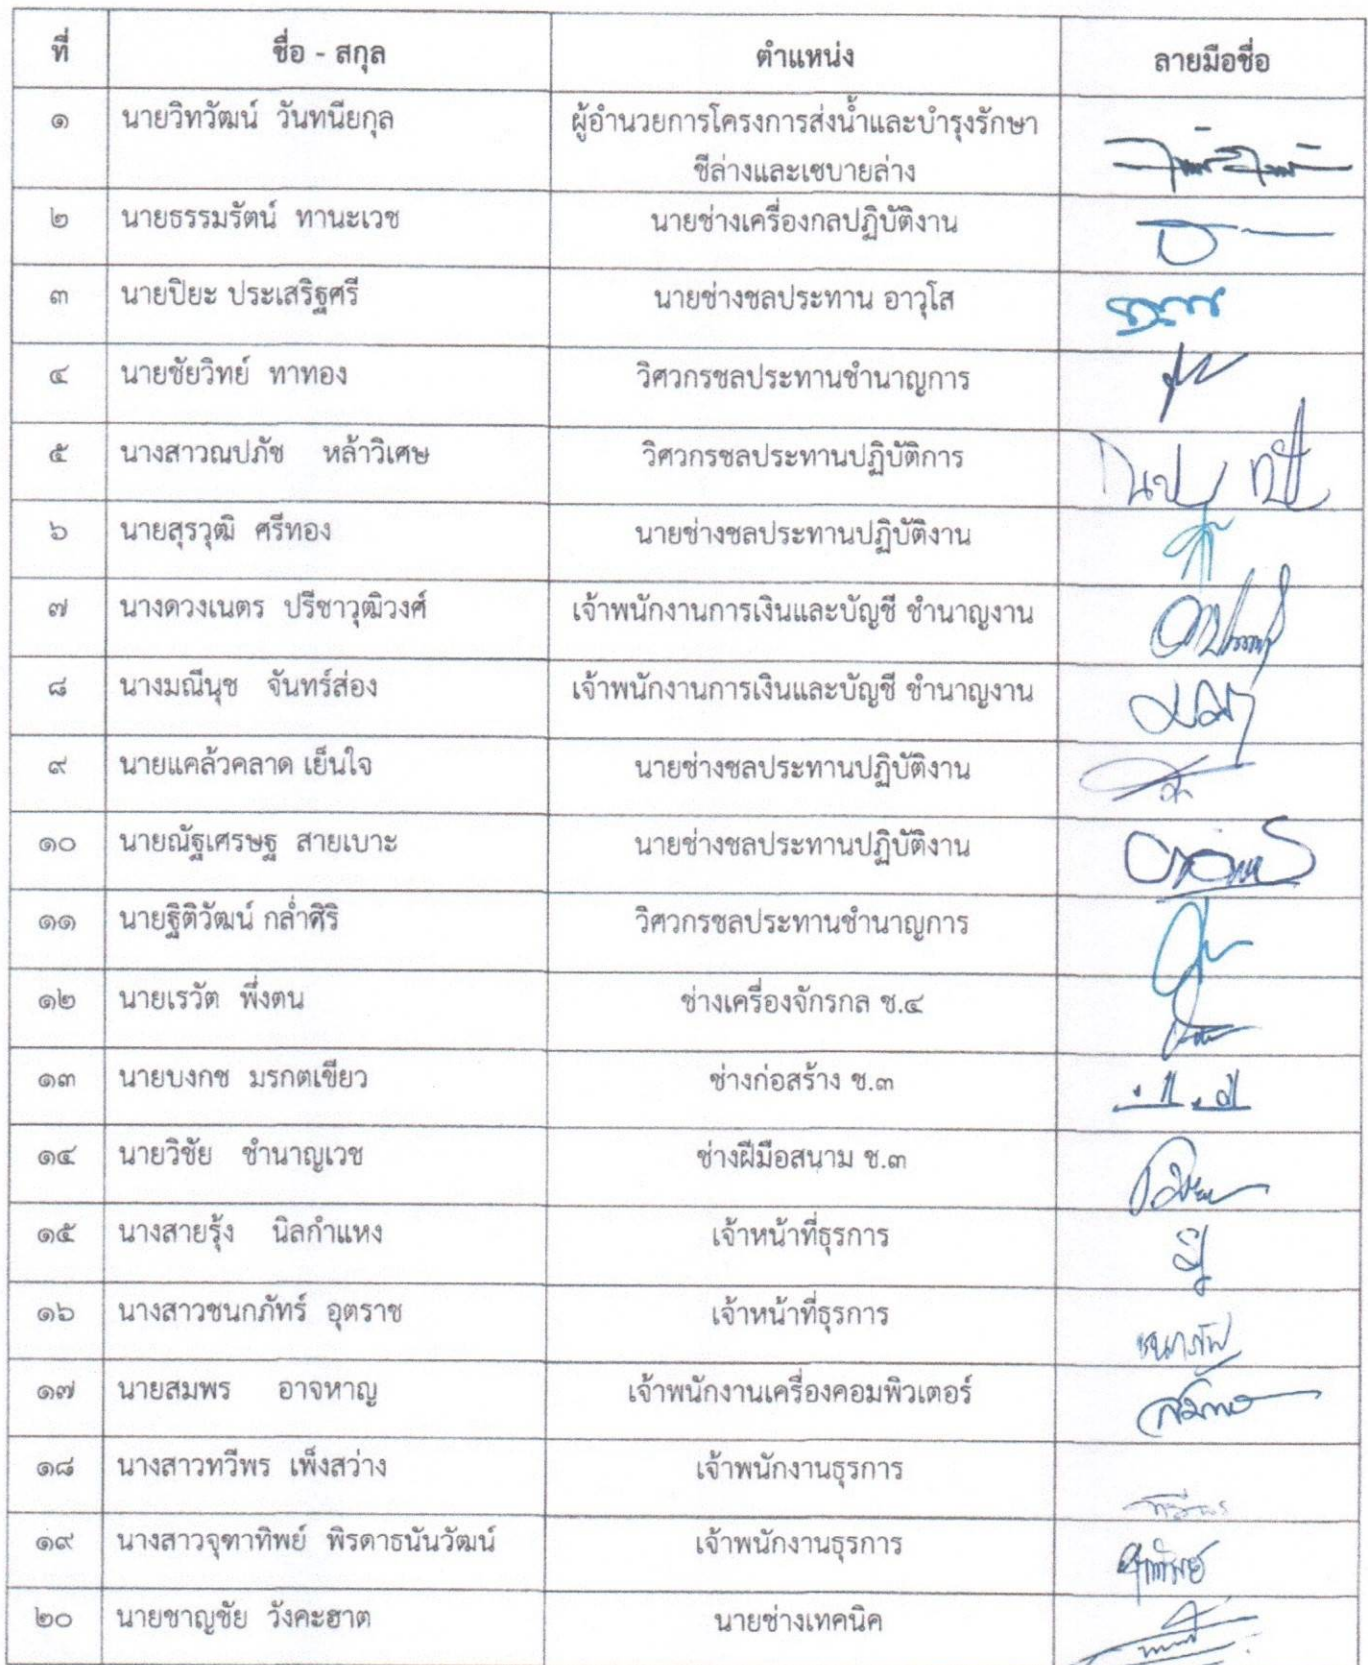 ที่ ชื่อ - สกุล ตำแหน่ง ลายมือชื่อ
๑ นายวิทวัฒน์ วันทนียกุล ผู้อำนวยการโครงการส่งน้ำและบำรุงรักษา
ชีล่างและเซบายล่าง
๒ นายธรรมรัตน์ ทานะเวช นายช่างเครื่องกลปฏิบัติงาน
๓ นายปิยะ ประเสริฐศรี นายช่างชลประทาน อาวุโส
๔ นายชัยวิทย์ ทาทอง วิศวกรชลประทานชำนาญการ
๕ นางสาวณปภัช หล้าวิเศษ วิศวกรชลประทานปฏิบัติการ
๖ นายสุรวุฒิ ศรีทอง นายช่างชลประทานปฏิบัติงาน
๗ นางดวงเนตร ปรีชาวุฒิวงศ์ เจ้าพนักงานการเงินและบัญชี ชำนาญงาน
๘ นางมณีนุช จันทร์ส่อง เจ้าพนักงานการเงินและบัญชี ชำนาญงาน
๙ นายแคล้วคลาด เย็นใจ นายช่างชลประทานปฏิบัติงาน
๑๐ นายณัฐเศรษฐ สายเบาะ นายช่างชลประทานปฏิบัติงาน
๑๑ นายฐิติวัฒน์ กล่ำศิริ วิศวกรชลประทานชำนาญการ
๑๒ นายเรวัต พึ่งตน ช่างเครื่องจักรกล ช.๔
๑๓ นายบงกช มรกตเขียว ช่างก่อสร้าง ช.๓
๑๔ นายวิชัย ชำนาญเวช ช่างฝีมือสนาม ช.๓
๑๕ นางสายรุ้ง นิลกำแหง เจ้าหน้าที่ธุรการ
๑๖ นางสาวชนกภัทร์ อุตราช เจ้าหน้าที่ธุรการ
๑๗ นายสมพร อาจหาญ เจ้าพนักงานเครื่องคอมพิวเตอร์
๑๘ นางสาวทวีพร เพ็งสว่าง เจ้าพนักงานธุรการ
ทวีพร
๑๙ นางสาวจุฑาทิพย์ พิรดาธนันวัฒน์ เจ้าพนักงานธุรการ
๒๐ นายชาญชัย วังคะฮาต นายช่างเทคนิค